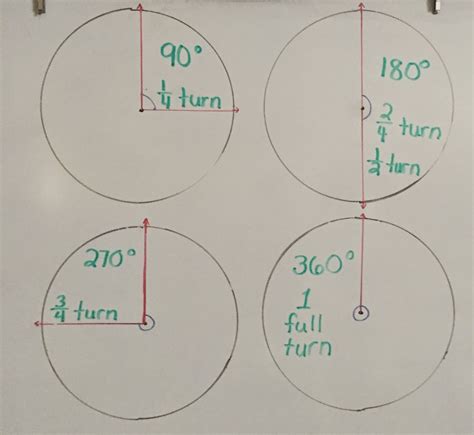 90°
1/4 turn
180°
2/4 turn
1/2 turn
270°
3/4 turn
360°
1
full
turn